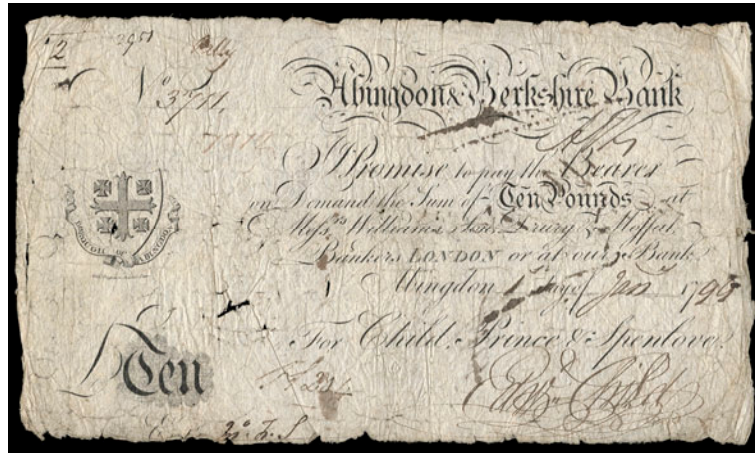 2 2951
No 3711.
Abingdon & Berkshire Bank
I Promise to pay the Bearer
on Demand the Sum of Ten Pounds at
Messrs Williams Drury & Moffat
Bankers LONDON or at our Bank
Abingdon 1 day of Jany 1796
For Child, Prince & Spenlove.
BOROUGH OF ABINGDON
Ten
Edwd Child